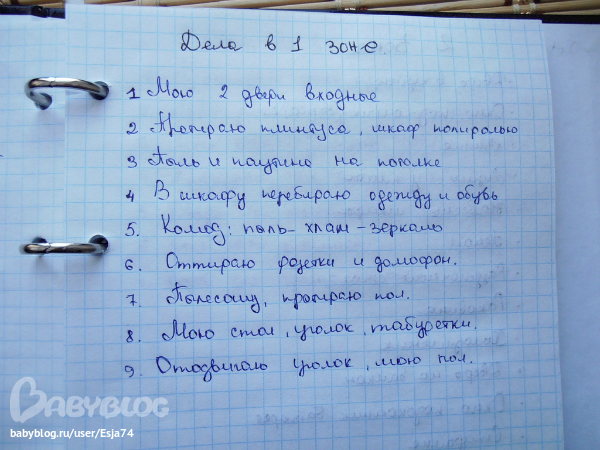 Дела в 1 зоне
1 Мою 2 двери входные
2 Протираю плинтуса, шкаф полиролью
3 Пыль и паутина на потолке
4 В шкафу перебираю одежду и обувь
5. Комод: пыль - хлам - зеркало
6. Оттираю розетки и домофон.
7. Пылесошу, протираю пол.
8. Мою стол, уголок, табуретки.
9. Отодвигаю уголок, мою пол.
BABYBLOG
babyblog.ru/user/Esja74